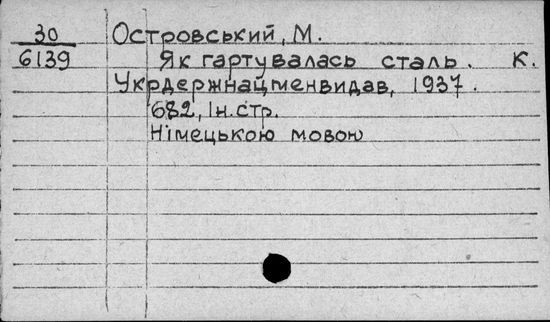 30 Островський, М.
6139 Як гартувалась сталь. К.
Укрдержнацменвидав, 1937.
682, Ін.стр.
Німецькою мовою